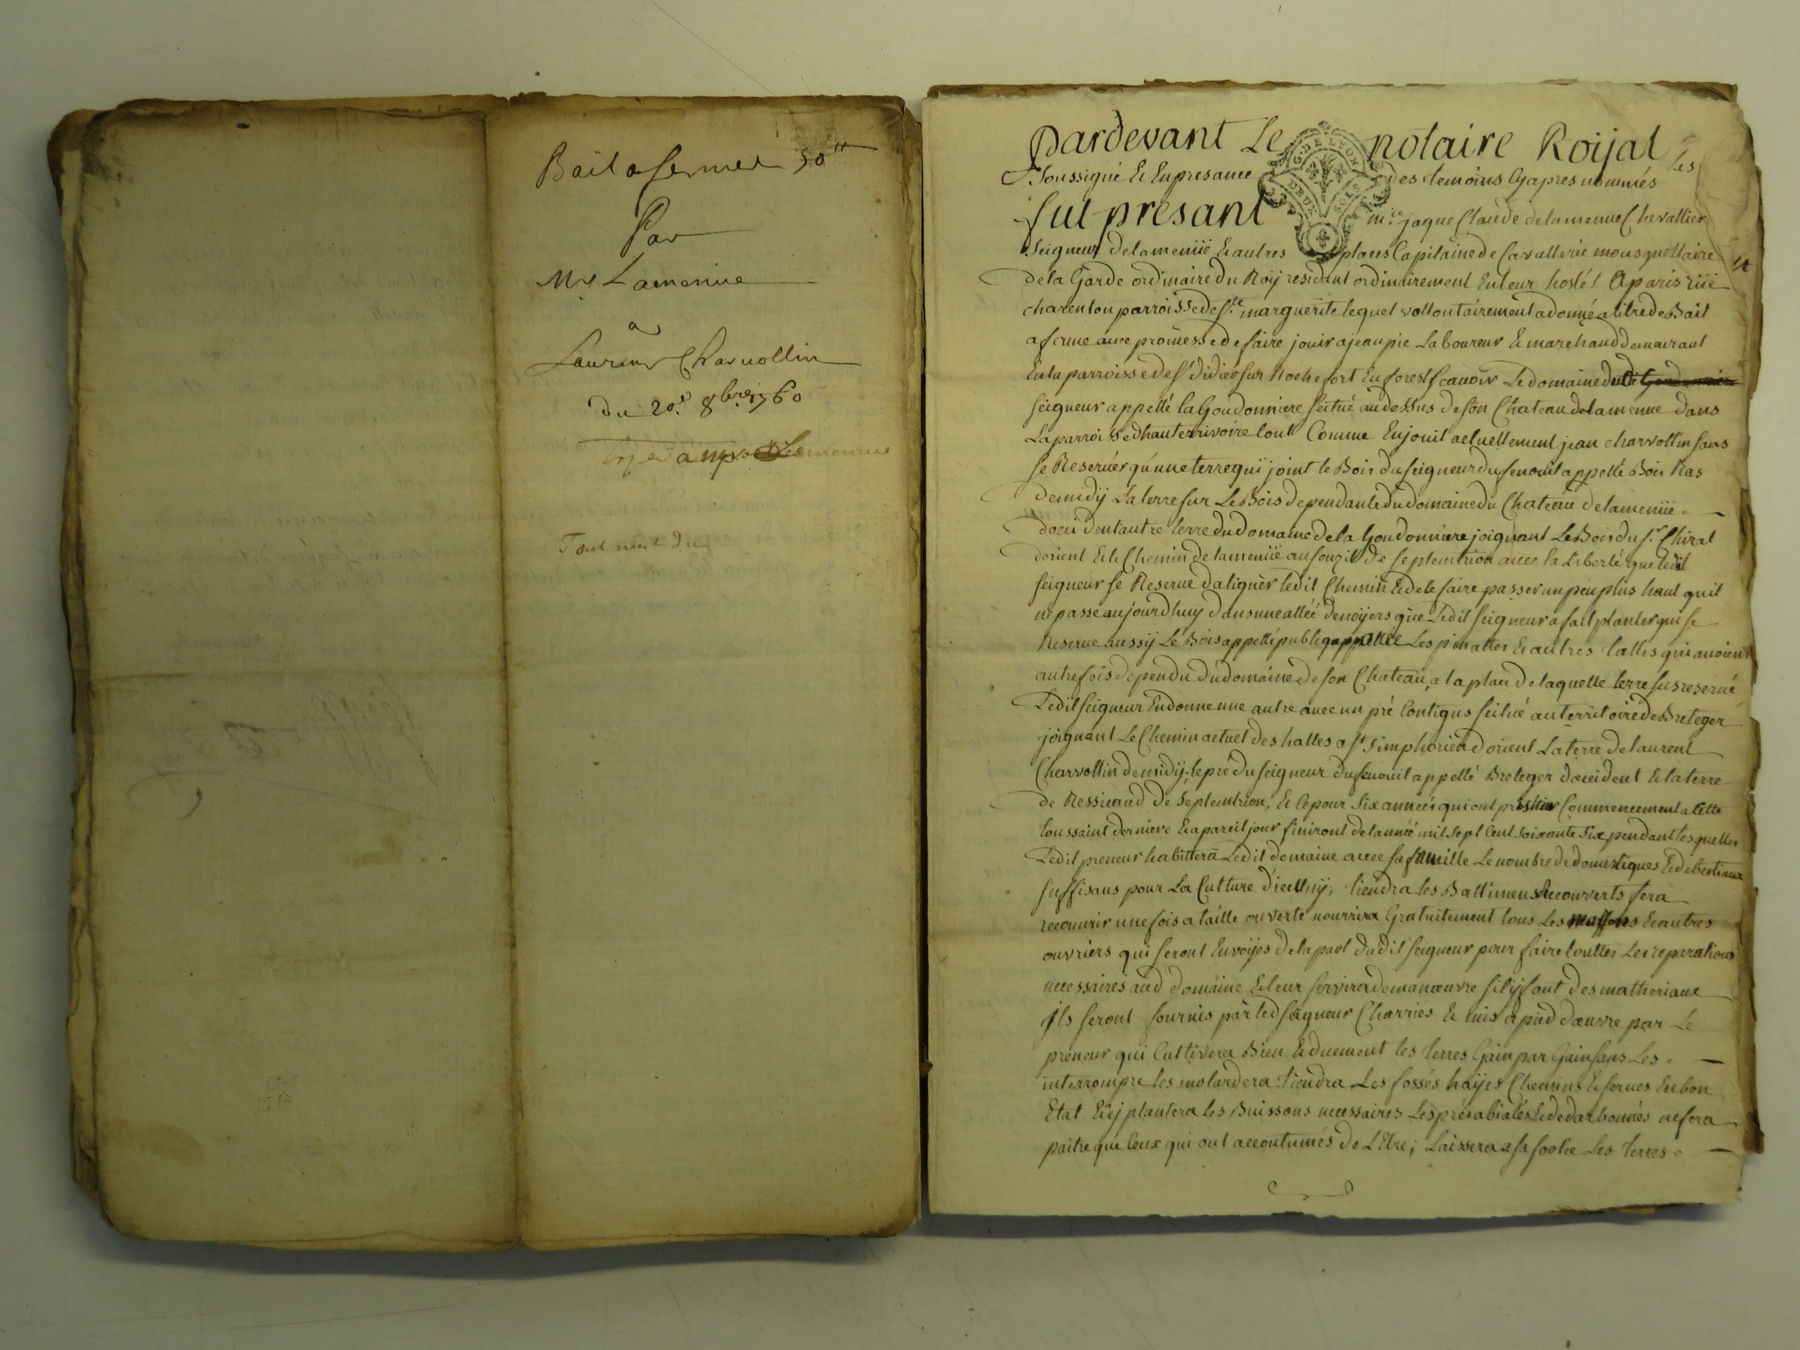 Bail a ferme 50tt
Par
Mr Lamenue
a
Laurent Charvollin
du 20e 8bre 1760
Tout
Pardevant Le notaire Roijal
Soussigné Et En presance des temoins Cyapres nommés Les
fut présant mre jaque Claude delamenue Chevallier
G. DE LYON
DEUX SOLS
seigneur delamenüe Et autres places Capitaine de Cavallerie mousquettaire
de la Garde ordinaire du Roy residant ordinairement En leur hostel A paris rüe
charenton parroisse de Ste marguerite lequel vollontairement a donné a titre de Bail
a ferme avec promesse de faire jouir a jean pie Laboureur Et marchand demeurant
En la parroisse de St didier sur Rochefort En forest scavoir Le domaine dudit
seigneur appellé la Goudonniere scitué au dessus de son Chateau delamenue dans
La parroisse dhauterrivoire tout Comme En jouit actuellement jean charvollin sans
se Reserver qu'une terre qui joint le Bois du seigneur du fenouil appellé Bois Ras
de midÿ La terre sur Le Bois dependante du domaine du Chateau delamenüe
docci dent autre terre du domaine de la Goudonniere joignant Le Bois du Sr Chirat
dorient Et le Chemin delamenüe au souzil de septentrion avec la Liberté que ledit
seigneur se Reserve daligner ledit Chemin Et de le faire passer un peu plus haut quil
ne passe aujourdhuy dans une allée de noÿers que Ledit seigneur a fait planter qui se
Reserve aussÿ Le Bois appellé public appellée Les pinattes Et autres tallis qui avoient
autrefois dependu du domaine de son Chateau, a la place de laquelle terre sus reservé
Ledit seigneur En donne une autre avec un pré Contigus scitué au territoire de Breteger
joignant Le Chemin actuel des halles a St simphorien dorient La terre de laurent
Charvollin de midÿ, Le pré du seigneur du fenouil appellé Breteger doccident Et la terre
de Ressicaud de septentrion, Et ce pour six années qui ont pris leur Commencement a Cette
toussaint derniere Et a pareil jour finiront de lannée mil sept Cent soixante six pendant lesquelles
Ledit preneur habittera Ledit domaine avec sa famille Le nombre de domestiques Et de bestiaux
suffisans pour La Culture d'icelluy, tiendra les Battimens Recouverts fera
recouvrir une fois a taille ouverte nourrira Gratuitement tous Les massons Et autres
ouvriers qui seront Envoÿés de la part dudit seigneur pour faire touttes Les reparations
necessaires aud domaine Et leur servira de manœuvre sil ÿ faut des matheriaux
Ils seront fournis par led seigneur Charriés Et mis a pied dœuvre par Le
preneur qui Cultivera Bien Et duement les terres Gain par Gain sans Les
interrompre les motardera tiendra Les fossés haÿes Chemins Et serves En bon
Etat Et ÿ plantera les Buissons necessaires Les prés abialés Et dedarbonnés ne fera
paitre que Ceux qui ont accoutumés de L'Etre; Laissera a sa sortie Les terres